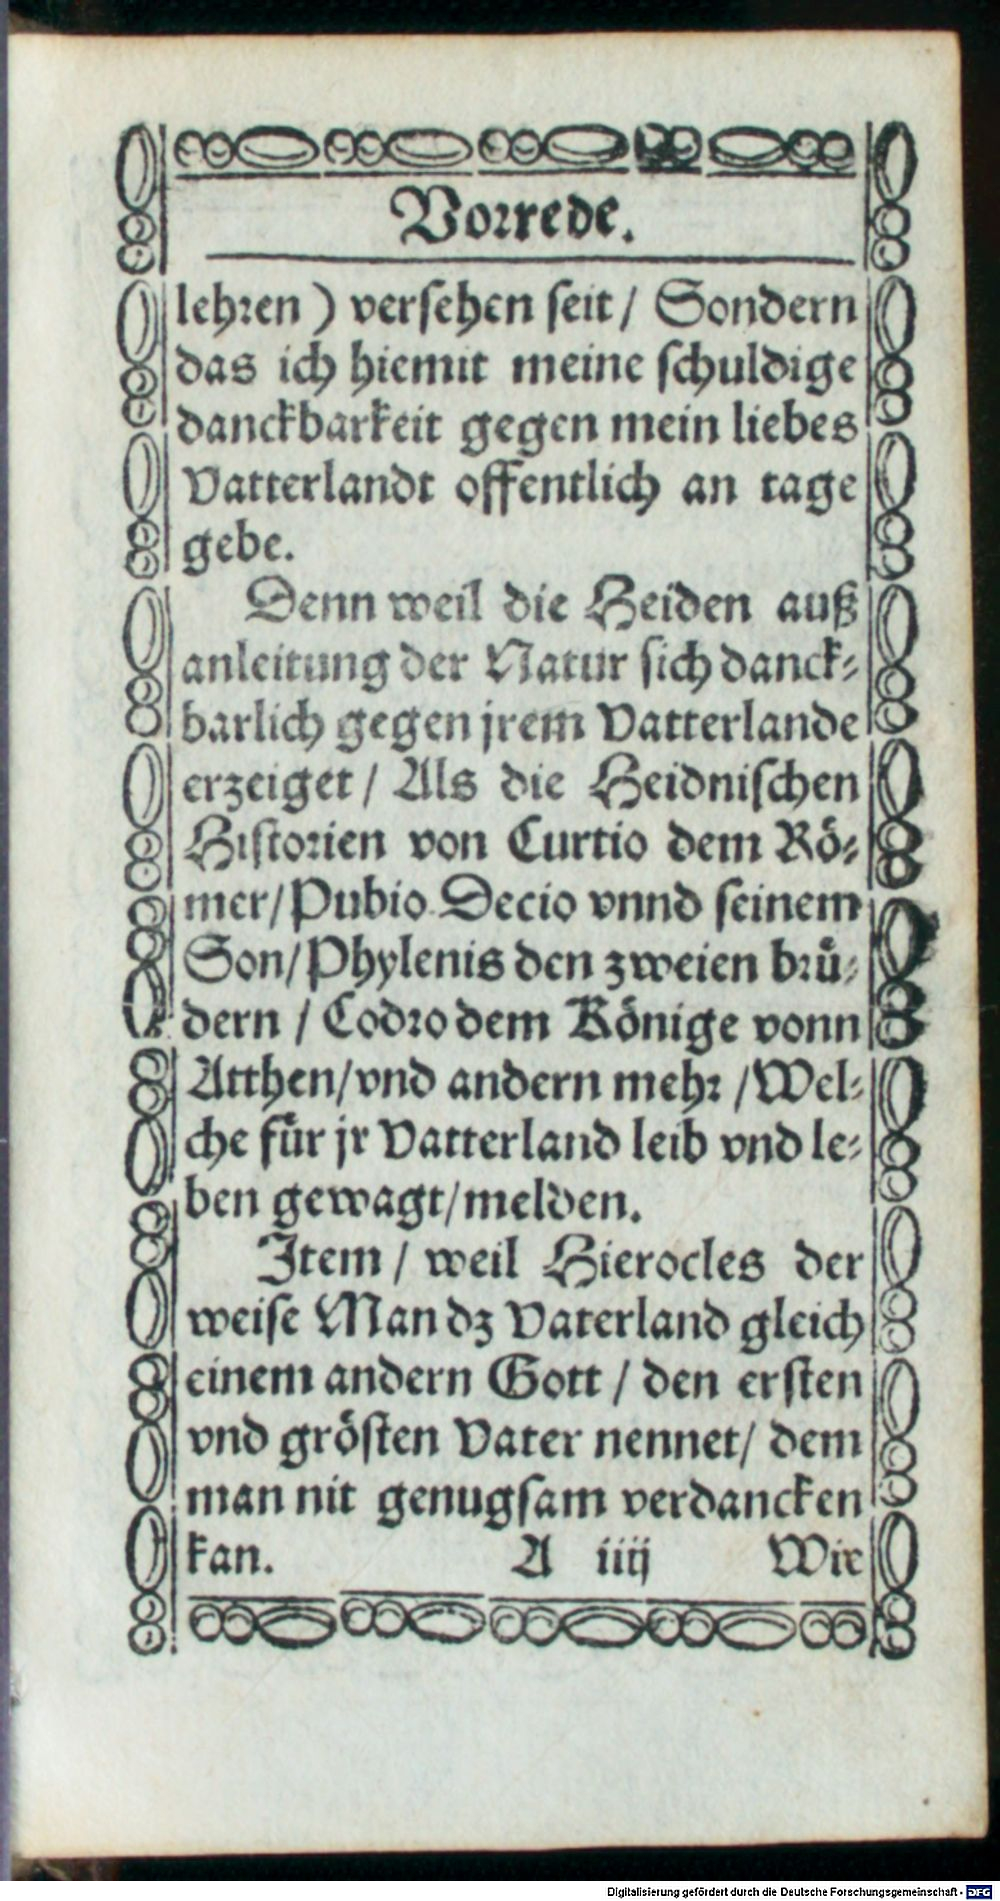 Vorrede.
lehren) versehen seit/ Sondern
das ich hiemit meine schuldige
danckbarkeit gegen mein liebes
Vatterlandt offentlich an tage
gebe.
Denn weil die Heiden auß
anleitung der Natur sich danck-
barlich gegen jrem Vatterlande
erzeiget/ Als die Heidnischen
Historien von Curtio dem Rö-
mer/ Pubio Decio vnnd seinem
Son/ Phylenis den zweien brü-
dern / Codro dem Könige vonn
Atthen/ vnd andern mehr / Wel-
che für jr Vatterland leib vnd le-
ben gewagt/ melden.
Item / weil Hierocles der
weise Man dz Vaterland gleich
einem andern Gott / den ersten
vnd grösten Vater nennet/ dem
man nit genugsam verdancken
kan. A iiij Wir
Digitalisierung gefördert durch die Deutsche Forschungsgemeinschaft - DFG